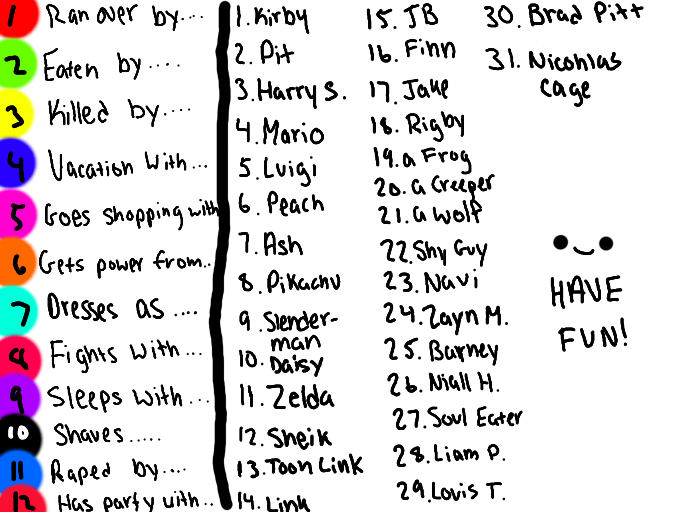 1 Ran over by....
2 Eaten by ....
3 Killed by ....
4 Vacation with...
5 Goes shopping with
6 Gets power from..
7 Dresses as ....
8 Fights with...
9 Sleeps with ...
10 Shaves .....
11 Raped by....
12 Has party with..
1. Kirby
2. Pit
3. Harry S.
4. Mario
5. Luigi
6. Peach
7. Ash
8. Pikachu
9. Slender-
man
10. Daisy
11. Zelda
12. Sheik
13. Toon Link
14. Link
15. JB
16. Finn
17. Jake
18. Rigby
19. a Frog
20. a Creeper
21. a Wolf
22. Shy Guy
23. Navi
24. Zayn M.
25. Barney
26. Niall H.
27. Soul Eater
28. Liam P.
29. Louis T.
30. Brad Pitt
31. Nicohlas
Cage
HAVE
FUN!